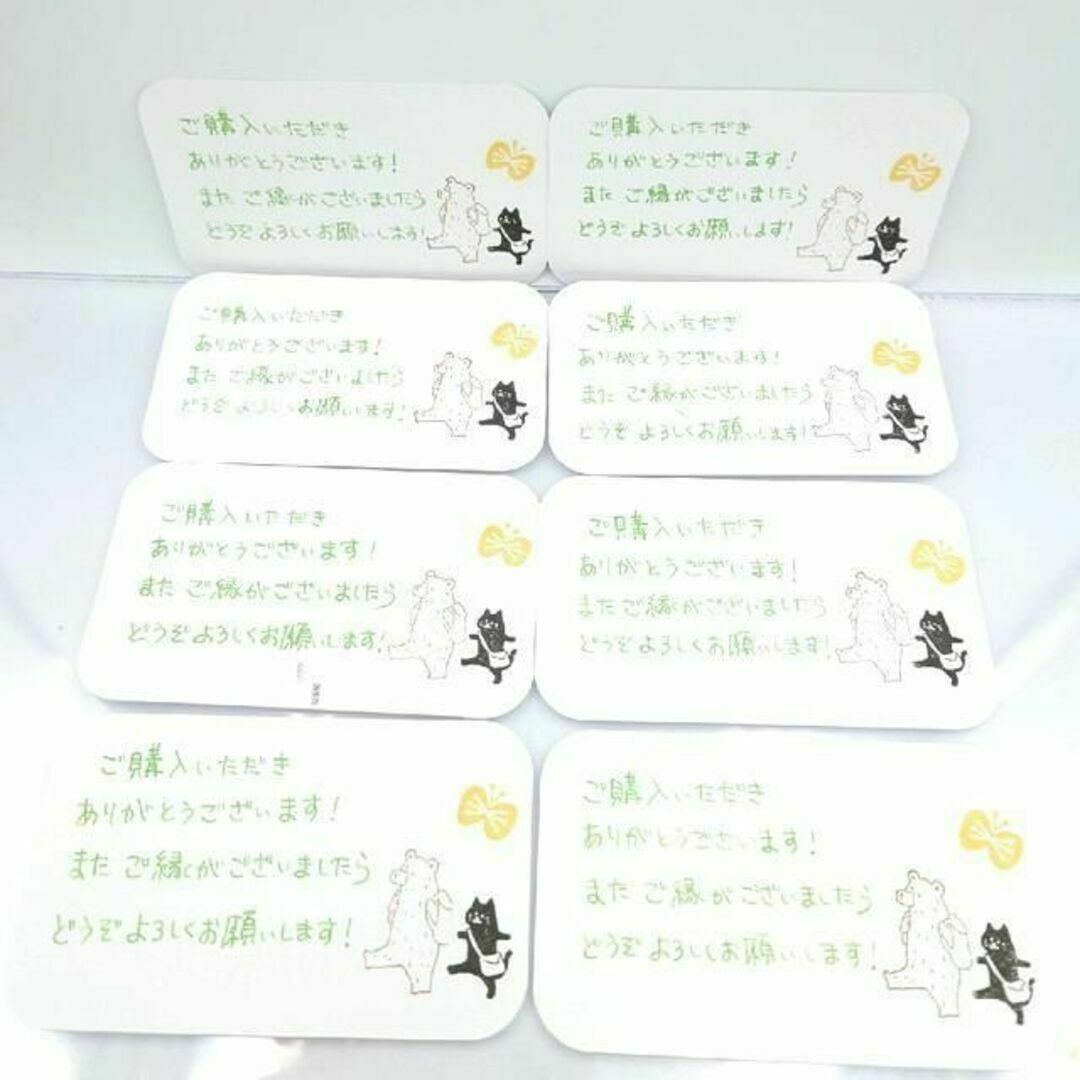 ご購入いただき
ありがとうございます!
また ご縁がございましたら
どうぞ よろしくお願いします!
ご購入いただき
ありがとうございます!
また ご縁がございましたら
どうぞ よろしくお願いします!
ご購入いただき
ありがとうございます!
また ご縁がございましたら
どうぞ よろしくお願いします!
ご購入いただき
ありがとうございます!
また ご縁がございましたら
どうぞ よろしくお願いします!
ご購入いただき
ありがとうございます!
また ご縁がございましたら
どうぞ よろしくお願いします!
ご購入いただき
ありがとうございます!
また ご縁がございましたら
どうぞ よろしくお願いします!
ご購入いただき
ありがとうございます!
また ご縁がございましたら
どうぞ よろしくお願いします!
ご購入いただき
ありがとうございます!
また ご縁がございましたら
どうぞ よろしくお願いします!